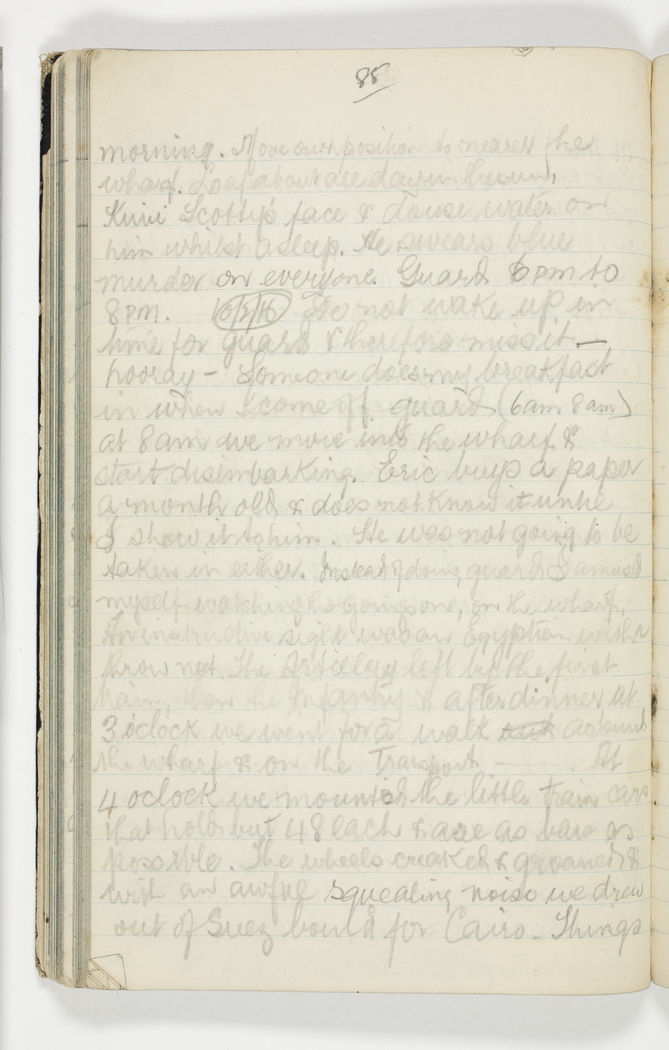 85
morning. Move our position to nearer the
wharf. Loaf about all day in the sun,
Scotty's face & douse water on
him whilst asleep. He swears blue
murder on everyone. Guard 6 pm to
8 pm. Do not wake up in
time for guard & therefore miss it —
hooray – Someone does my breakfast
in when I come off guard (6am 8am)
at 8am we move into the wharf &
start disembarking. Eric buys a paper
a month old & does not know it until
I show it to him. He was not going to be
taken in either. Instead of doing guard I amused
myself watching the goings on, on the wharf,
An instructive sight was an Egyptian with a
throw net. The Artillery left by the first
train, then the Infantry & after dinner at
3 oclock we went for a walk around
the wharf & on the Transport ——— At
4 oclock we mounted the little train cars
that hold but 48 each & are as bare as
possible. The wheels creaked & groaned &
with an awful squealing noise we drew
out of Suez bound for Cairo. Things